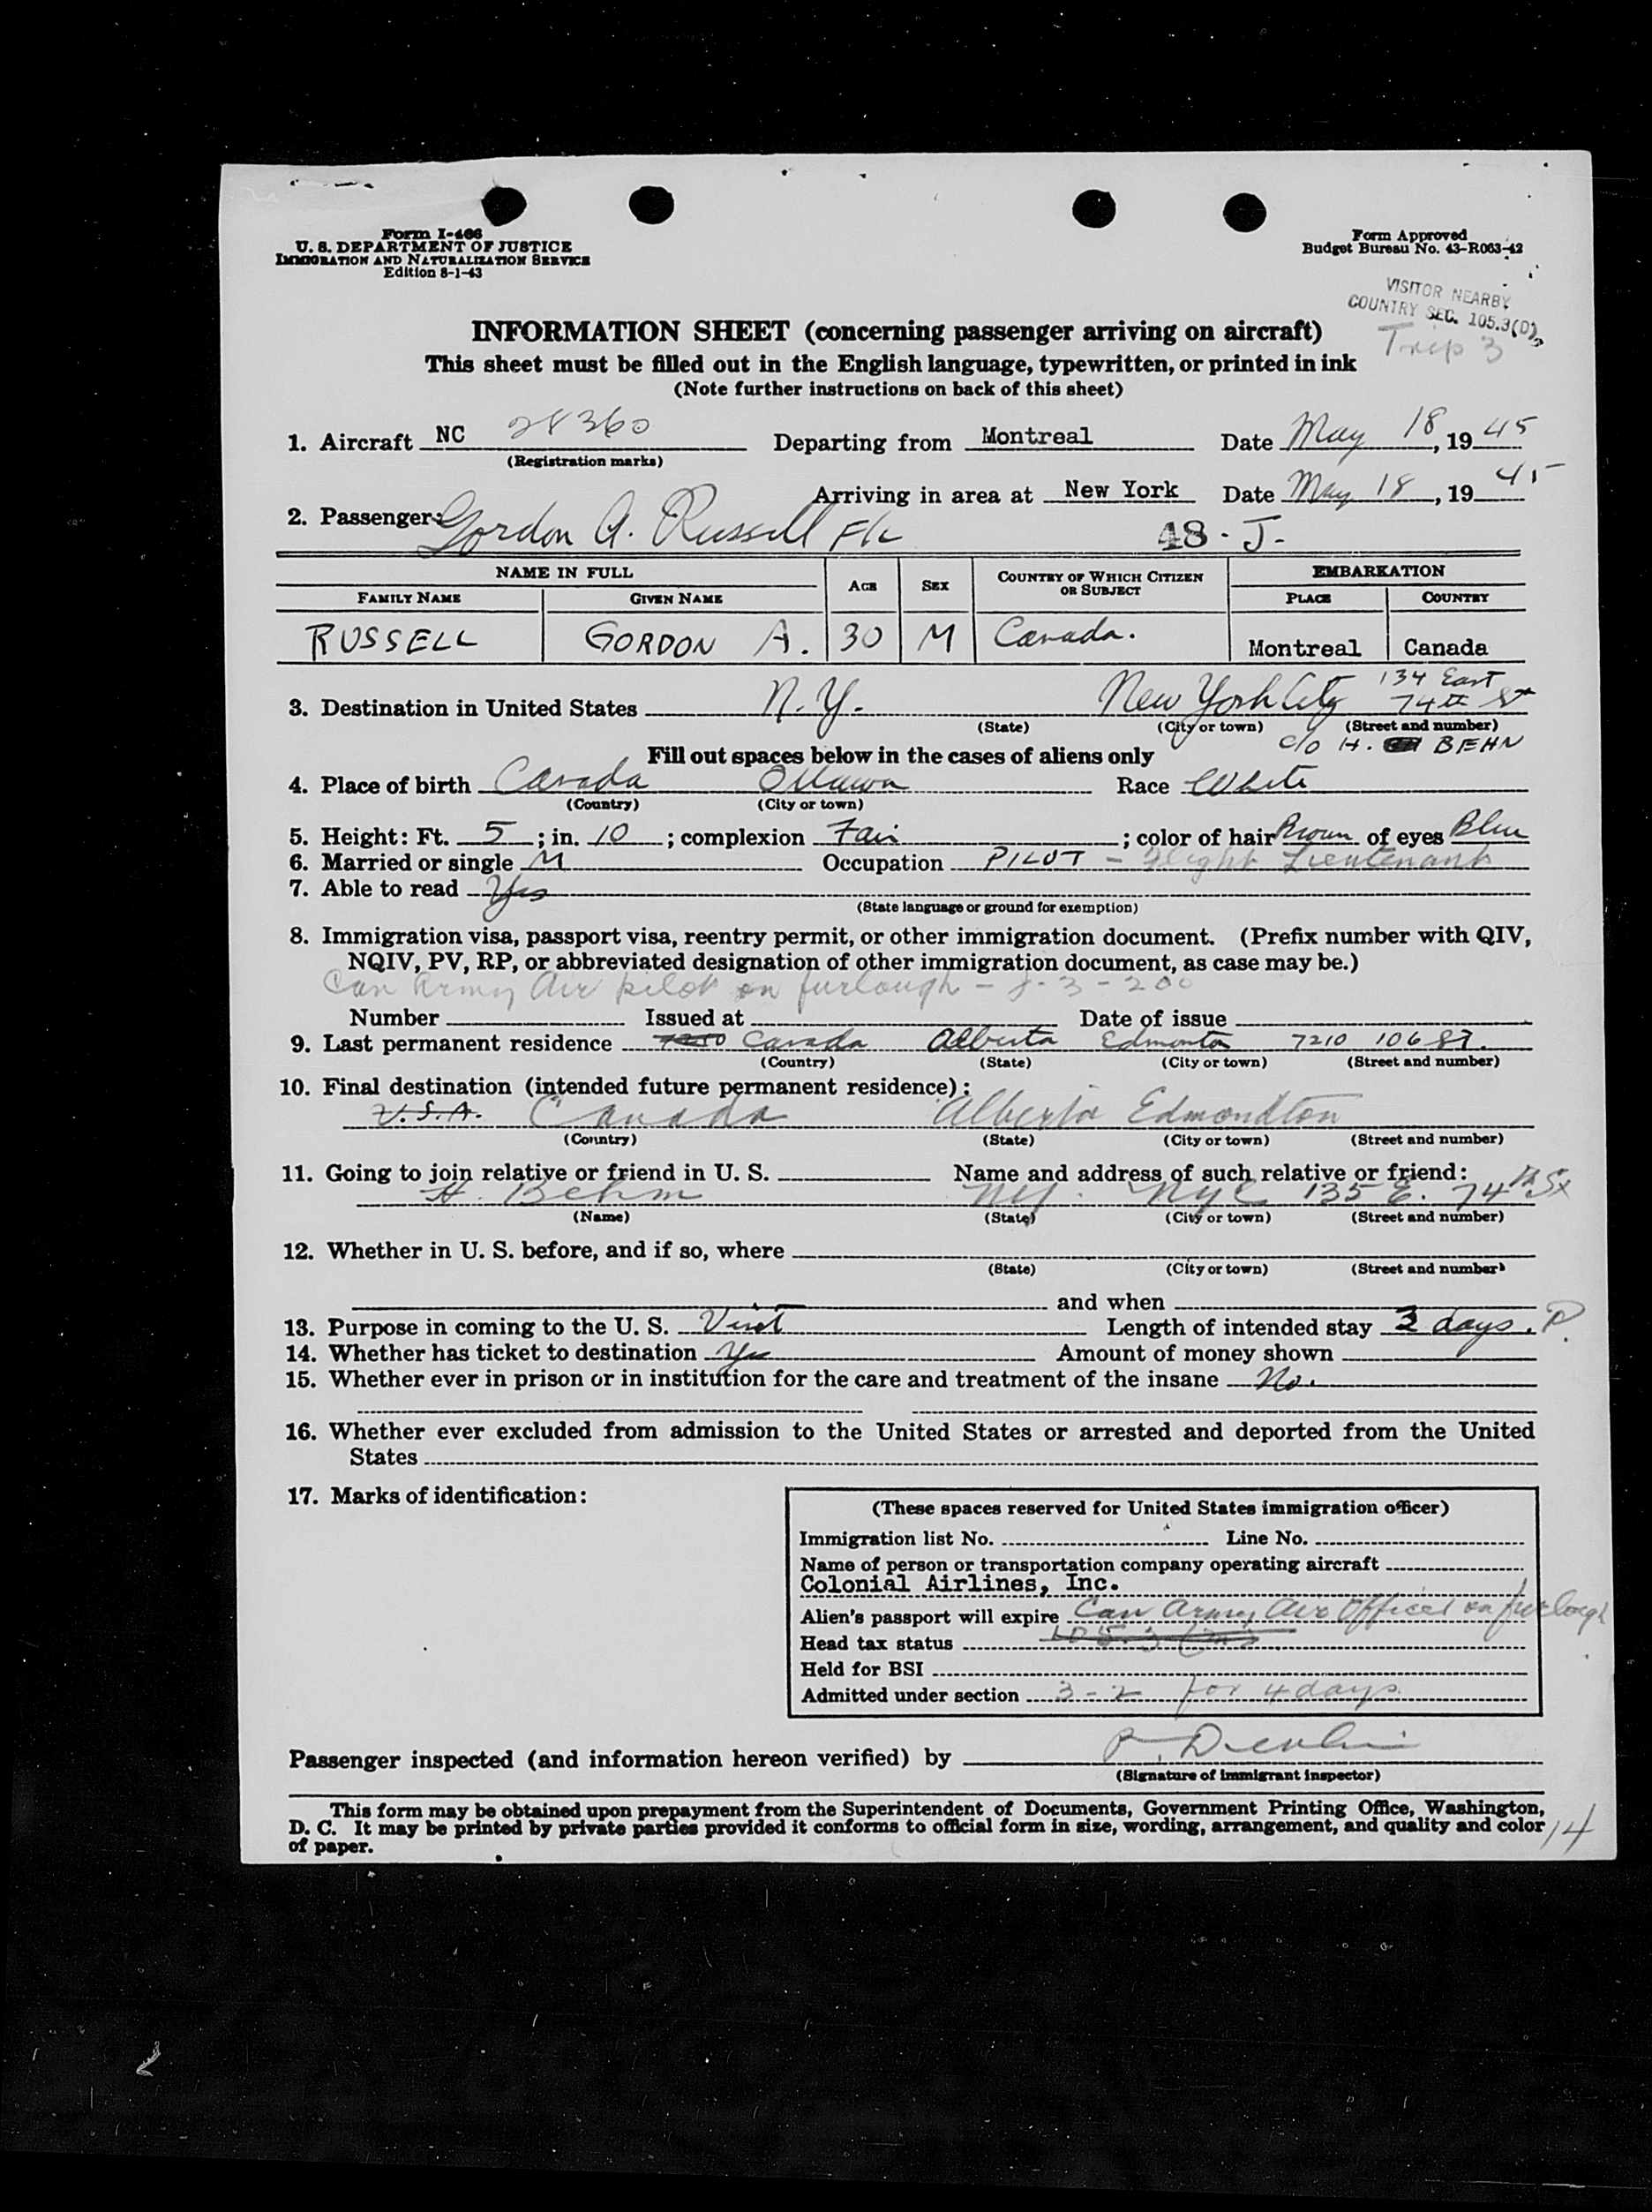 Form I-466
U. S. DEPARTMENT OF JUSTICE
IMMIGRATION AND NATURALIZATION SERVICE
Edition 8-1-43
Form Approved
Budget Bureau No. 43-R063-42
VISITOR NEARBY
COUNTRY SEC. 105.3(D)
Trip 3
INFORMATION SHEET (concerning passenger arriving on aircraft)
This sheet must be filled out in the English language, typewritten, or printed in ink
(Note further instructions on back of this sheet)
1. Aircraft NC 28360 Departing from Montreal Date May 18, 1945
(Registration marks)
Arriving in area at New York Date May 18, 1945
2. Passenger: Gordon A. Russell F/L 48-J-
NAME IN FULL AGE SEX COUNTRY OF WHICH CITIZEN OR SUBJECT EMBARKATION
FAMILY NAME GIVEN NAME PLACE COUNTRY
RUSSELL GORDON A. 30 M Canada. Montreal Canada
3. Destination in United States N.Y. New York City 134 East 74th St
(State) (City or town) (Street and number)
c/o H. BEHN
Fill out spaces below in the cases of aliens only
4. Place of birth Canada Ottawa Race White
(Country) (City or town)
5. Height: Ft. 5; in. 10; complexion Fair; color of hair Brown of eyes Blue
6. Married or single M Occupation PILOT - Flight Lieutenant
7. Able to read Yes
(State language or ground for exemption)
8. Immigration visa, passport visa, reentry permit, or other immigration document. (Prefix number with QIV,
NQIV, PV, RP, or abbreviated designation of other immigration document, as case may be.)
Can Army Air pilot on furlough
Number Issued at Date of issue
9. Last permanent residence Canada Alberta Edmonton 7210 106 St.
(Country) (State) (City or town) (Street and number)
10. Final destination (intended future permanent residence):
U.S.A. Canada Alberta Edmondton
(Country) (State) (City or town) (Street and number)
11. Going to join relative or friend in U. S. Name and address of such relative or friend:
H. Behm NY. NYC 135 E. 74th St
(Name) (State) (City or town) (Street and number)
12. Whether in U. S. before, and if so, where
(State) (City or town) (Street and number)
and when
13. Purpose in coming to the U. S. Visit Length of intended stay 3 days. P.
14. Whether has ticket to destination Yes Amount of money shown
15. Whether ever in prison or in institution for the care and treatment of the insane No.
16. Whether ever excluded from admission to the United States or arrested and deported from the United
States
17. Marks of identification:
(These spaces reserved for United States immigration officer)
Immigration list No. Line No.
Name of person or transportation company operating aircraft
Colonial Airlines, Inc.
Alien's passport will expire Can Army Air Officer on furlough
Head tax status
Held for BSI
Admitted under section 3-2 for 4 days
Passenger inspected (and information hereon verified) by
(Signature of immigrant inspector)
This form may be obtained upon prepayment from the Superintendent of Documents, Government Printing Office, Washington,
D. C. It may be printed by private parties provided it conforms to official form in size, wording, arrangement, and quality and color
of paper.
14